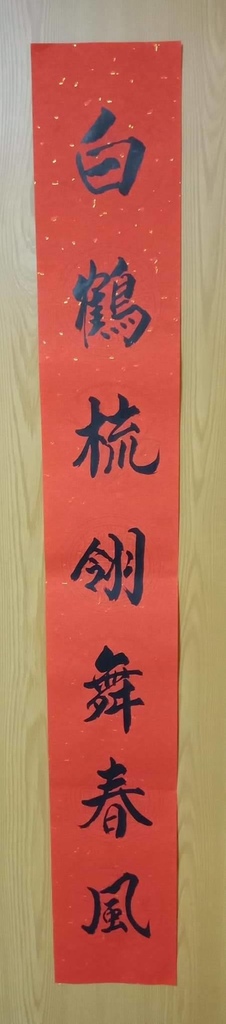 白鶴梳翎舞春風